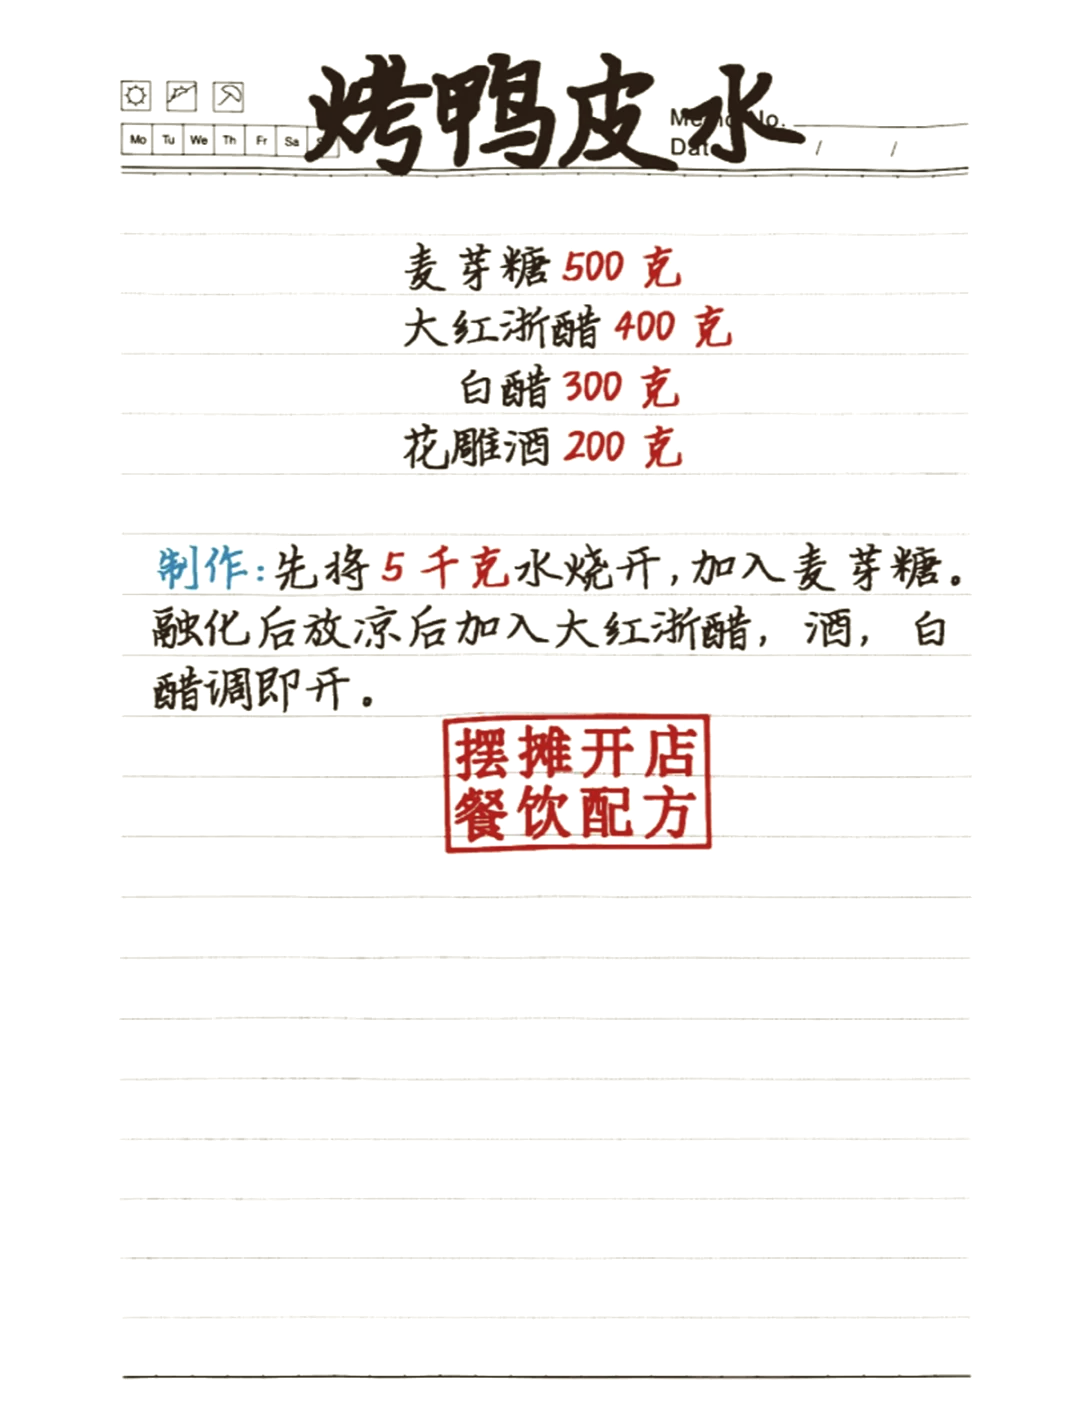 烤鸭皮水
Mo Tu We Th Fr Sa
Memo No.
Date / /
麦芽糖 500 克
大红浙醋 400 克
白醋 300 克
花雕酒 200 克
制作:先将 5 千克水烧开,加入麦芽糖。
融化后放凉后加入大红浙醋,酒,白
醋调即开。
摆摊开店
餐饮配方